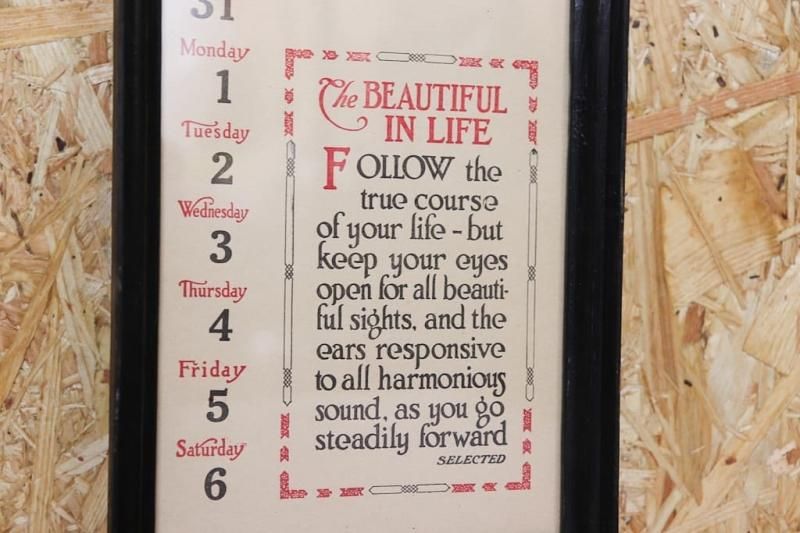 31
Monday
1
Tuesday
2
Wednesday
3
Thursday
4
Friday
5
Saturday
6
The BEAUTIFUL
IN LIFE
FOLLOW the
true course
of your life - but
keep your eyes
open for all beauti-
ful sights, and the
ears responsive
to all harmonious
sound, as you go
steadily forward
SELECTED